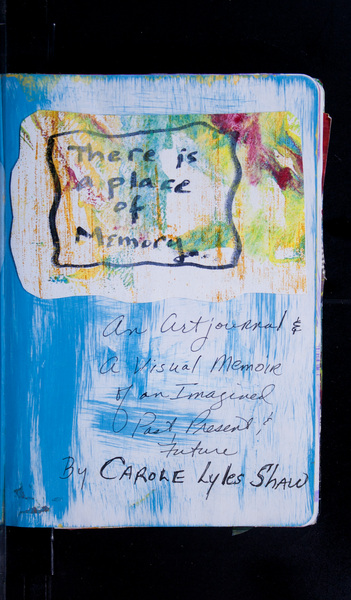 There is
a place
of
Memory
An Artjournal &
A Visual Memoir
of an Imagined
Past, Present &
Future
By CAROLE Lyles SHAW